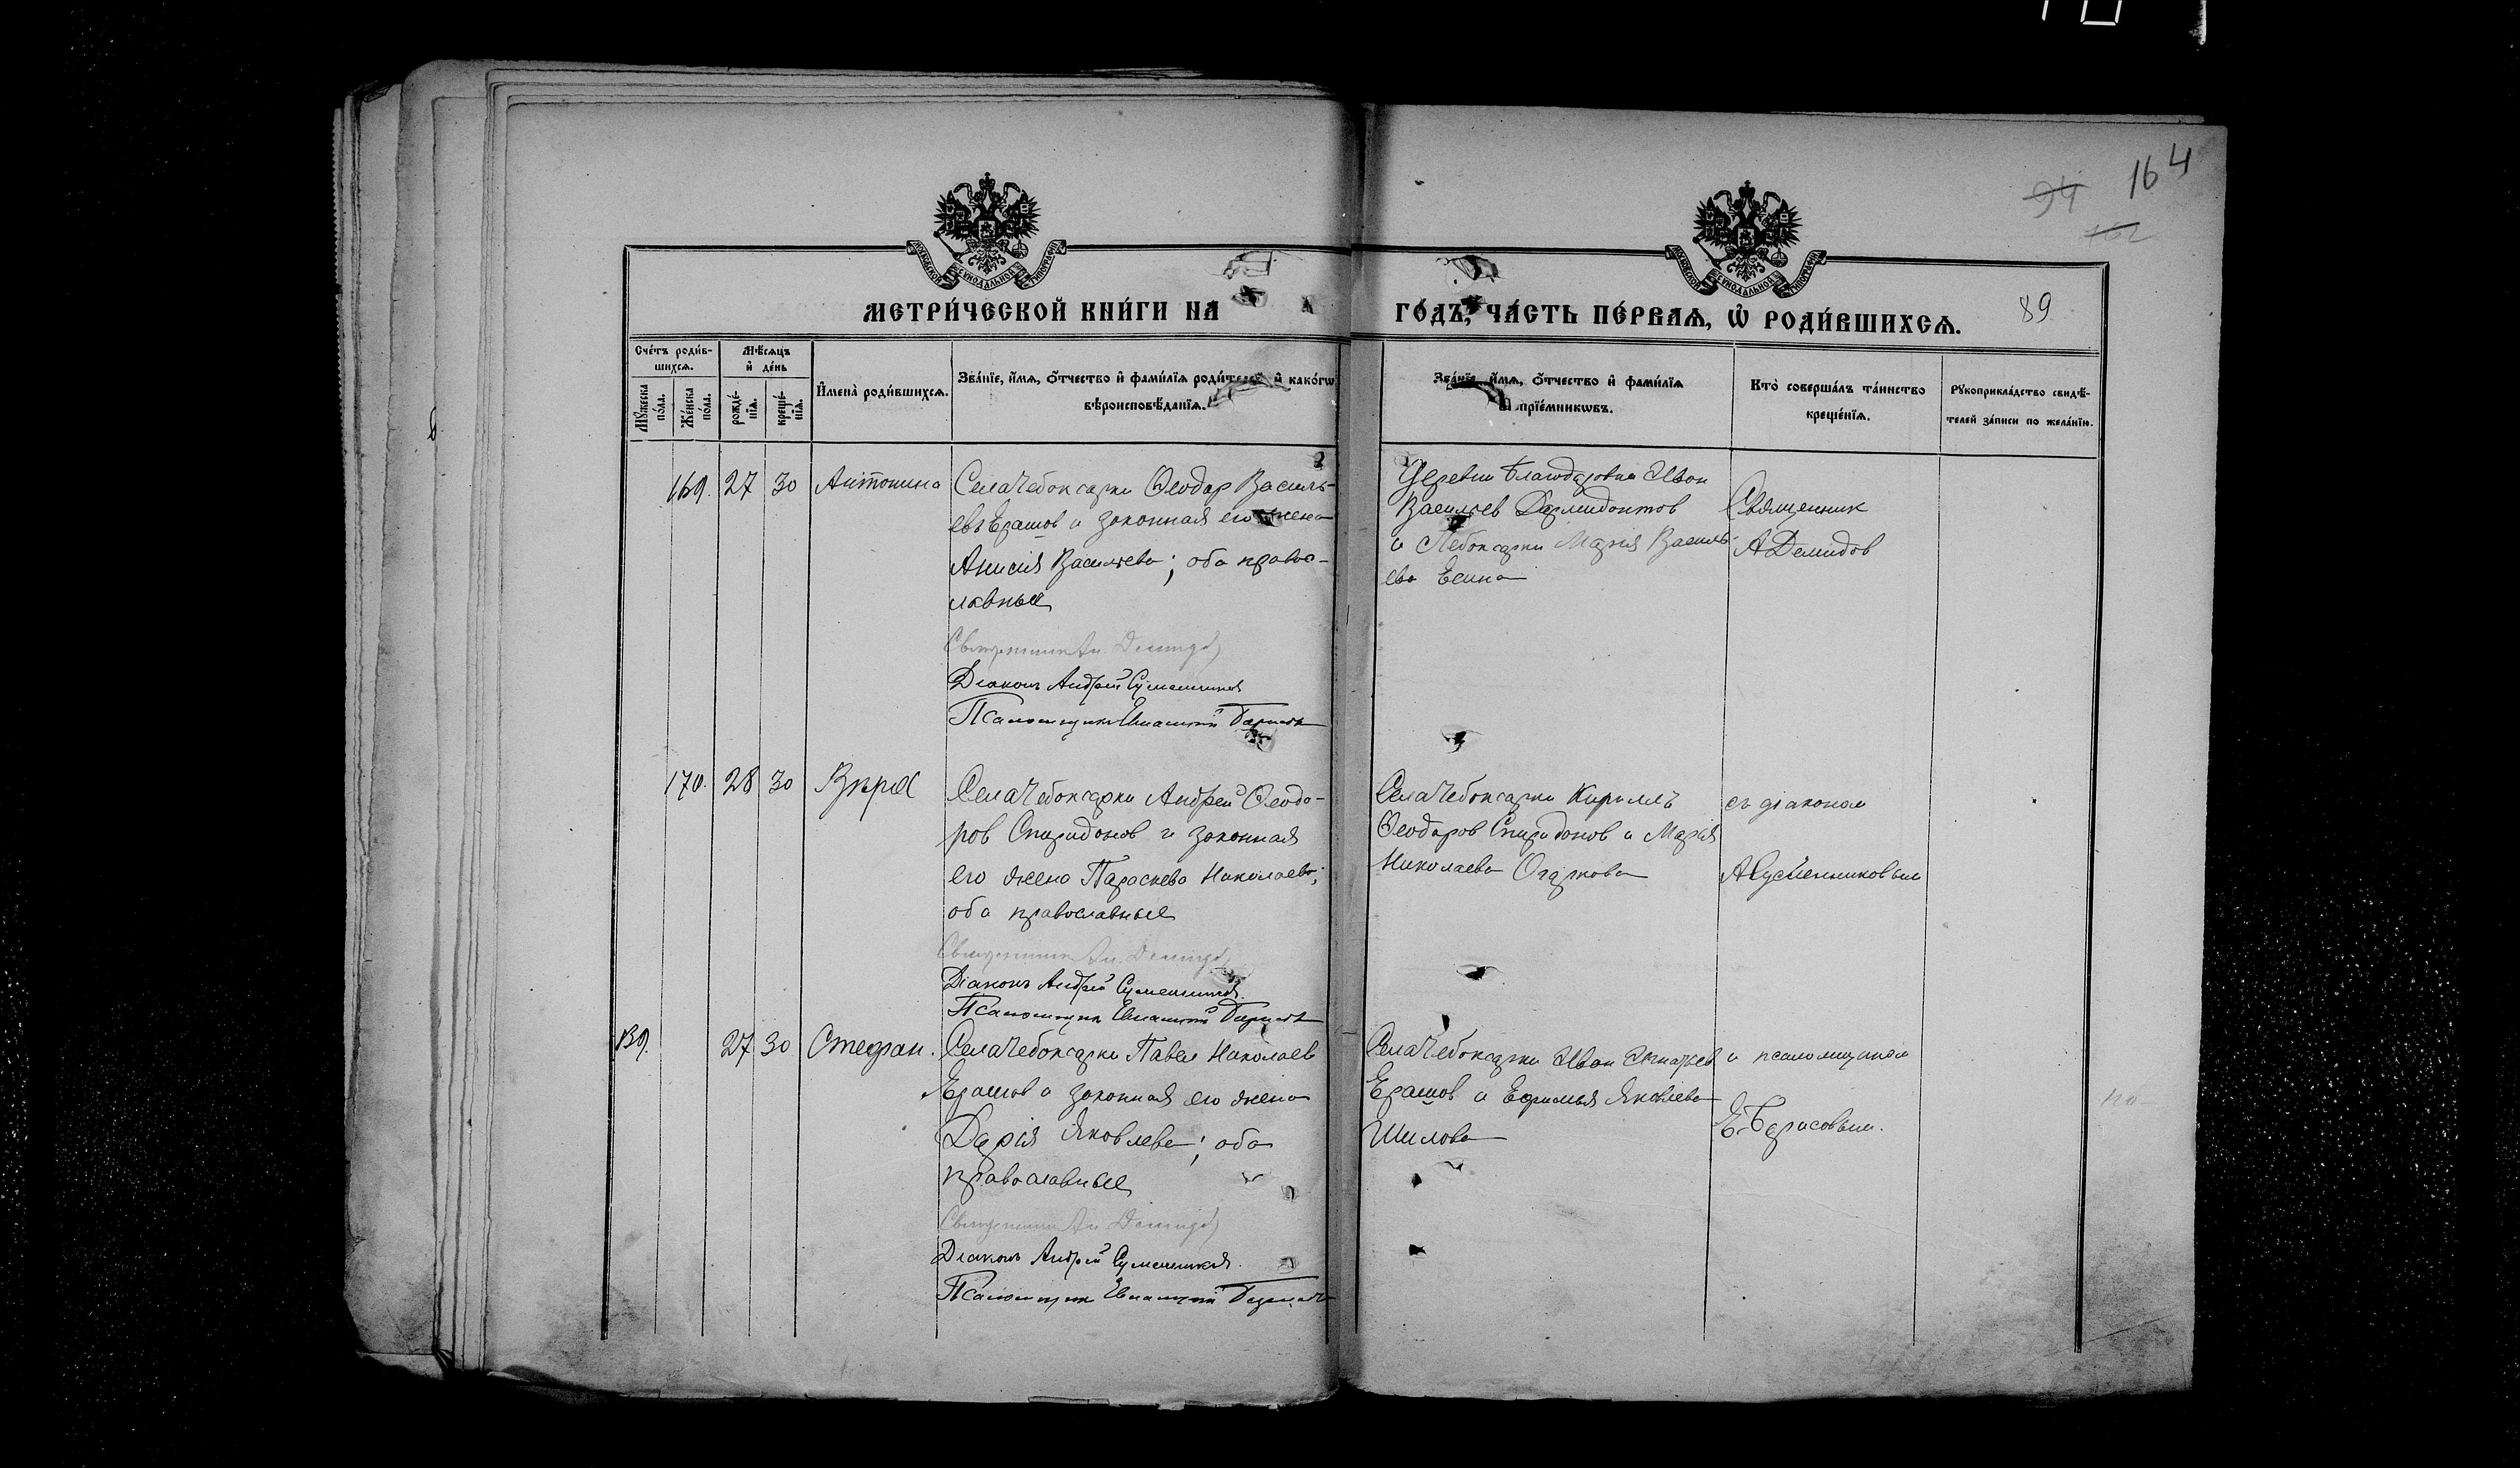 164
94
102
МОСКОВСКОЙ СѴНОДАЛЬНОЙ ТИПОГРАФІИ
МОСКОВСКОЙ СѴНОДАЛЬНОЙ ТИПОГРАФІИ
МЕТРИ́ЧЕСКОЙ КНИ́ГИ НА
ГО́ДЪ, ЧА́СТЬ ПЕ́РВАѦ, Ѡ҆ РОДИ́ВШИХСѦ.
89
Сче́тъ роди́в-
шихсѧ.
Мꙋ́жеска по́ла.
Же́нска по́ла.
Мѣ́сѧцъ
и҆ де́нь
рожде́-нїѧ.
креще́-нїѧ.
И҆мена̀ роди́вшихсѧ.
Зва́нїе, и҆́мѧ, ѻ҆́тчество и҆ фами́лїѧ роди́телей и҆ како́гѡ
вѣроисповѣ́данїѧ.
Зва́нїе, и҆́мѧ, ѻ҆́тчество и҆ фами́лїѧ
прїе́мникѡвъ.
Кто̀ соверша́лъ та́инство
креще́нїѧ.
Рꙋкоприкла́дство свидѣ́-
телей за́писи по жела́нїю.
169. 27 30 Антонина
Села Чебоксарки Ѳеодор Василь-
евъ Ерашов и законная его жена
Анисия Васильева; оба правос-
лавные
Священник Ан. Демидов
Діаконъ Андрей Сусленников
Псаломщик Евлампий Барисов
Деревни Благодаровки Иван
Васильев Дармидонтов
и Чебоксарки Мария Василь-
ева Есина
Священник
А Демидов
170. 28 30 Вѣра
Села Чебоксарки Андрей Ѳеодо-
ров Спиридонов и законная
его жена Параскева Николаева;
оба православные
Священник Ан. Демидов
Діаконъ Андрей Сусленников.
Псаломщик Евлампий Барисов
Села Чебоксарки Кириллъ
Ѳеодоров Спиридонов и Марія
Николаева Огаркова
съ діаконом
А Сусленниковым
139. 27 30 Стефан.
Села Чебоксарки Павел Николаев
Ерашов и законная его жена
Дарія Яковлева; оба
православные
Священник Ан. Демидов
Діаконъ Андрей Сусленников.
Псаломщик Евлампий Барисов
Села Чебоксарки Иван Игнатьев
Ерашов и Ефимья Яковлева
Шилова
и псаломщиком
Е. Барисовым.